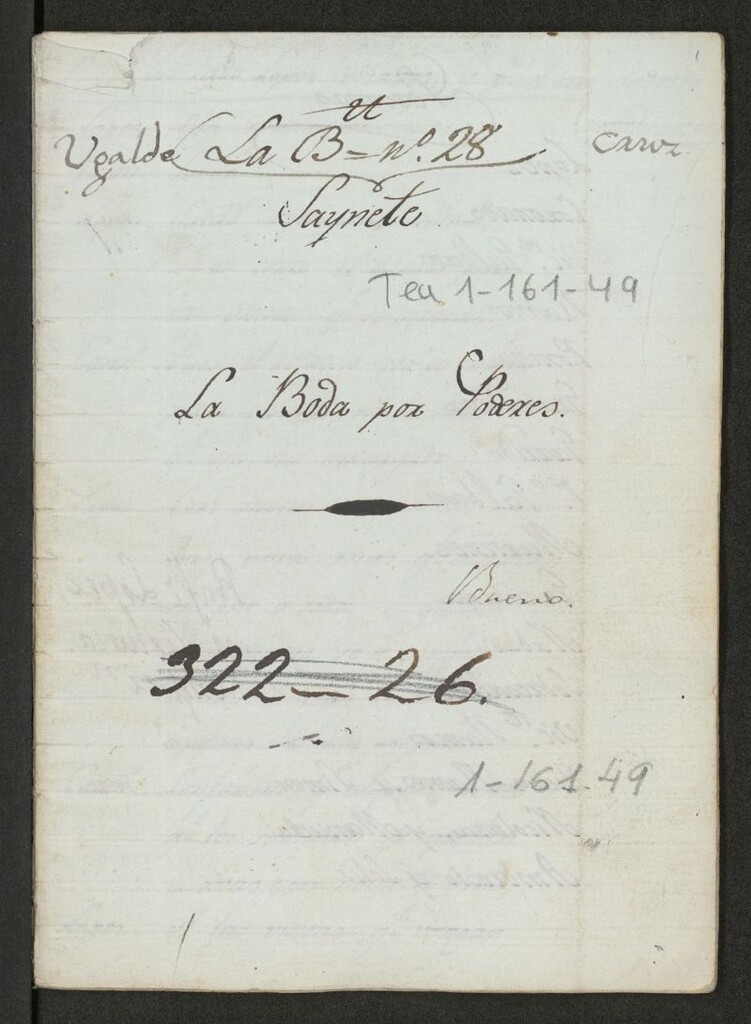 tt
Ugalde La B= nº. 28
Saynete
Tea 1-161-49
La Boda por Poderes.
Bueno.
322-26.
1-161-49